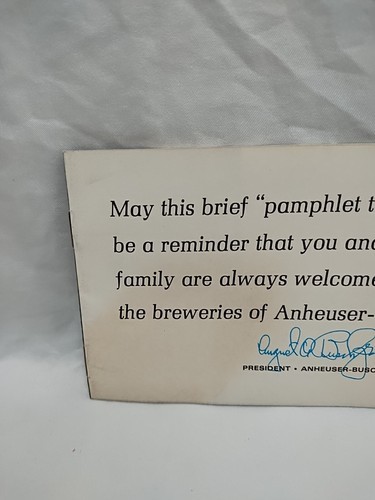 May this brief "pamphlet t
be a reminder that you and
family are always welcome
the breweries of Anheuser-
August A. Busch Jr.
PRESIDENT • ANHEUSER-BUSC